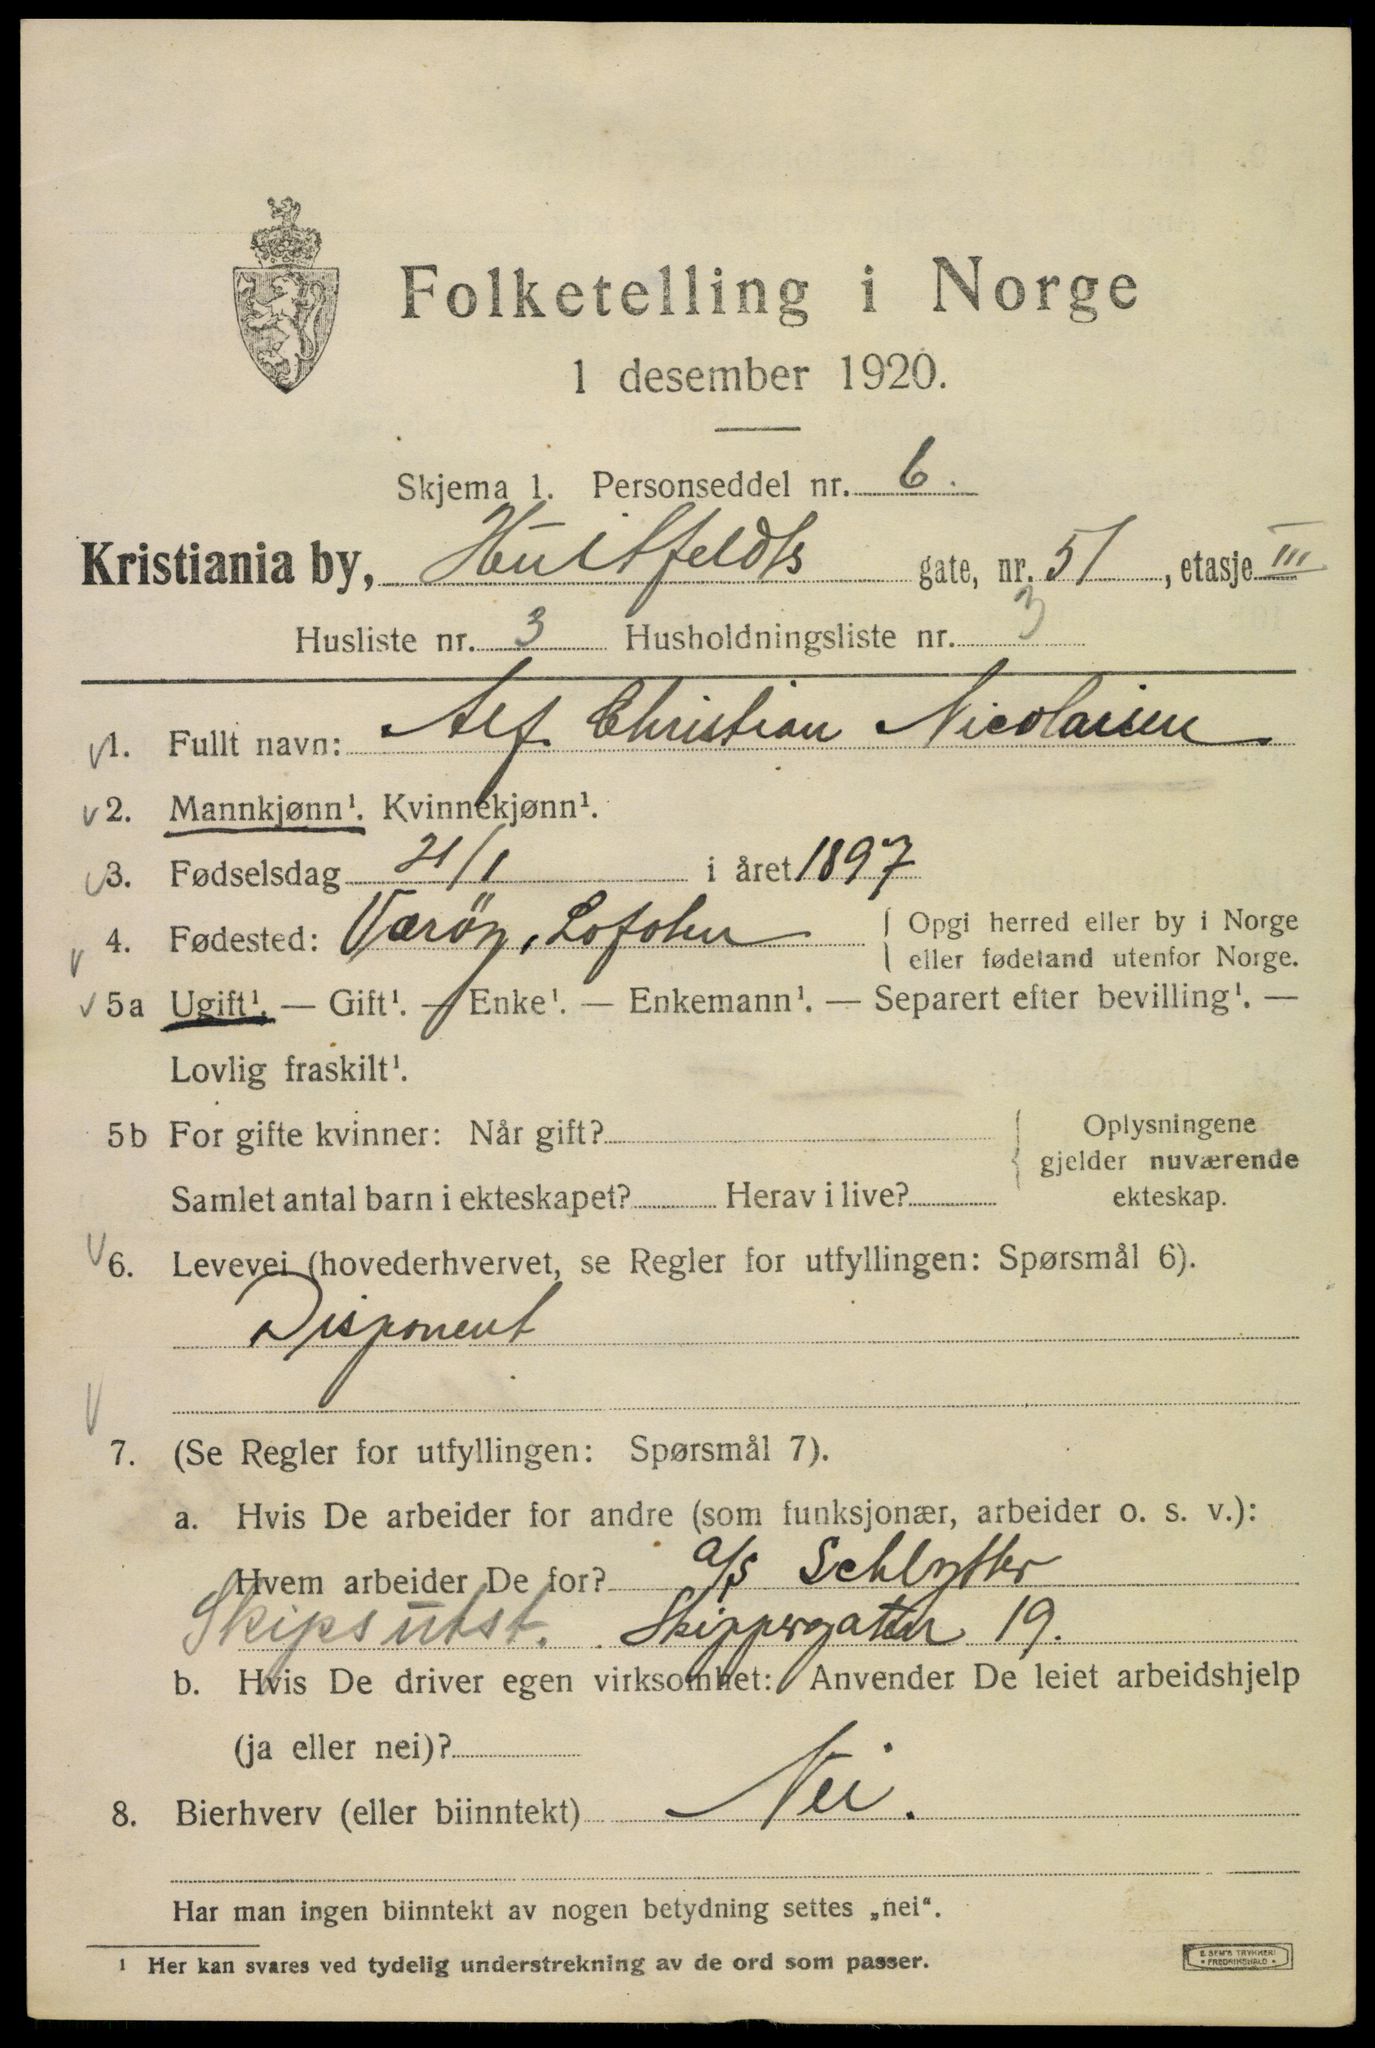 Folketelling i Norge
1 desember 1920.
Skjema 1. Personseddel nr. 6.
Kristiania by, Huitfeldts gate, nr. 51, etasje III
Husliste nr. 3 Husholdningsliste nr. 3
1. Fullt navn: Alf Christian Nicolaisen.
2. Mannkjønn¹. Kvinnekjønn¹.
3. Fødselsdag 21/1 i året 1897
4. Fødested: Væröy, Lofoten { Opgi herred eller by i Norge
eller fødeland utenfor Norge.
5a Ugift¹. — Gift¹. — Enke¹. — Enkemann¹. — Separert efter bevilling¹. —
Lovlig fraskilt¹.
5b For gifte kvinner: Når gift? { Oplysningene
gjelder nuværende
Samlet antal barn i ekteskapet? Herav i live? ekteskap.
6. Levevei (hovederhvervet, se Regler for utfyllingen: Spørsmål 6).
Disponent
7. (Se Regler for utfyllingen: Spørsmål 7).
a. Hvis De arbeider for andre (som funksjonær, arbeider o. s. v.):
Hvem arbeider De for? a/s Schlytter
Skipsutst. Skippergaten 19.
b. Hvis De driver egen virksomhet: Anvender De leiet arbeidshjelp
(ja eller nei)?
8. Bierhverv (eller biinntekt) Nei.
Har man ingen biinntekt av nogen betydning settes „nei“.
¹ Her kan svares ved tydelig understrekning av de ord som passer.
E SEM'S TRYKKERI
• FREDRIKSHALD •